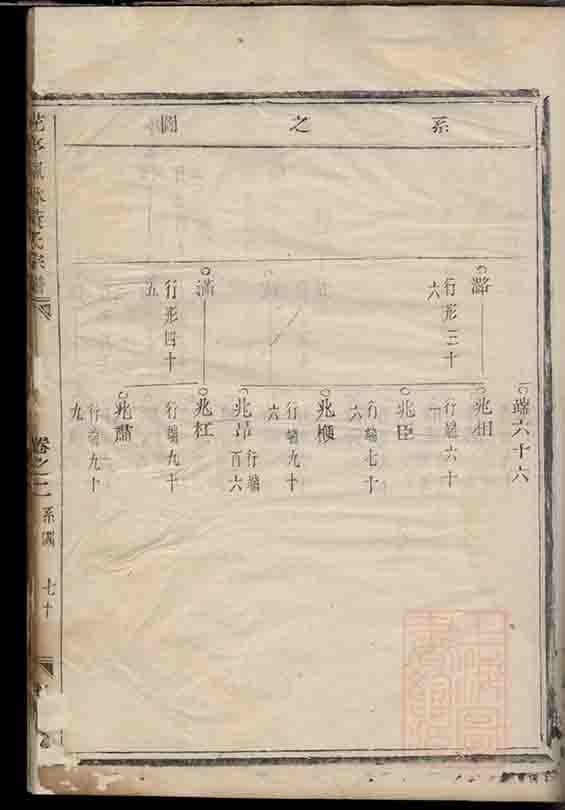 系之圖
端六十六
潞
行形三十
六
兆相
行端六十
一
兆臣
行端七十
六
兆㮰
行端九十
六
兆昂
行端
百六
滿
行形四十
五
兆杠
行端九十
兆肅
行端九十
九
氏宗譜
卷之二
系圖
七十